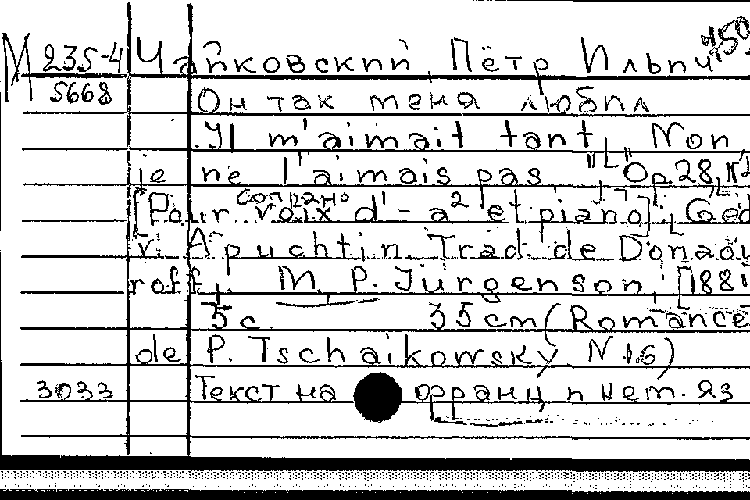 М 235-4 Чайковский, Пётр Ильич 450
5668 Он так меня любил
Il m'aimait tant, Non,
je ne l'aimais pas, Op 28, N
сопрано
[Pour voix d'-a² et piano]. Ged
v. A puchtin. Trad. de Donau
roff, M. P. Jurgenson, [188
5 с 35 cm (Romance
de P. Tschaikowsky N 16)
3033 Текст на франц и нем. яз